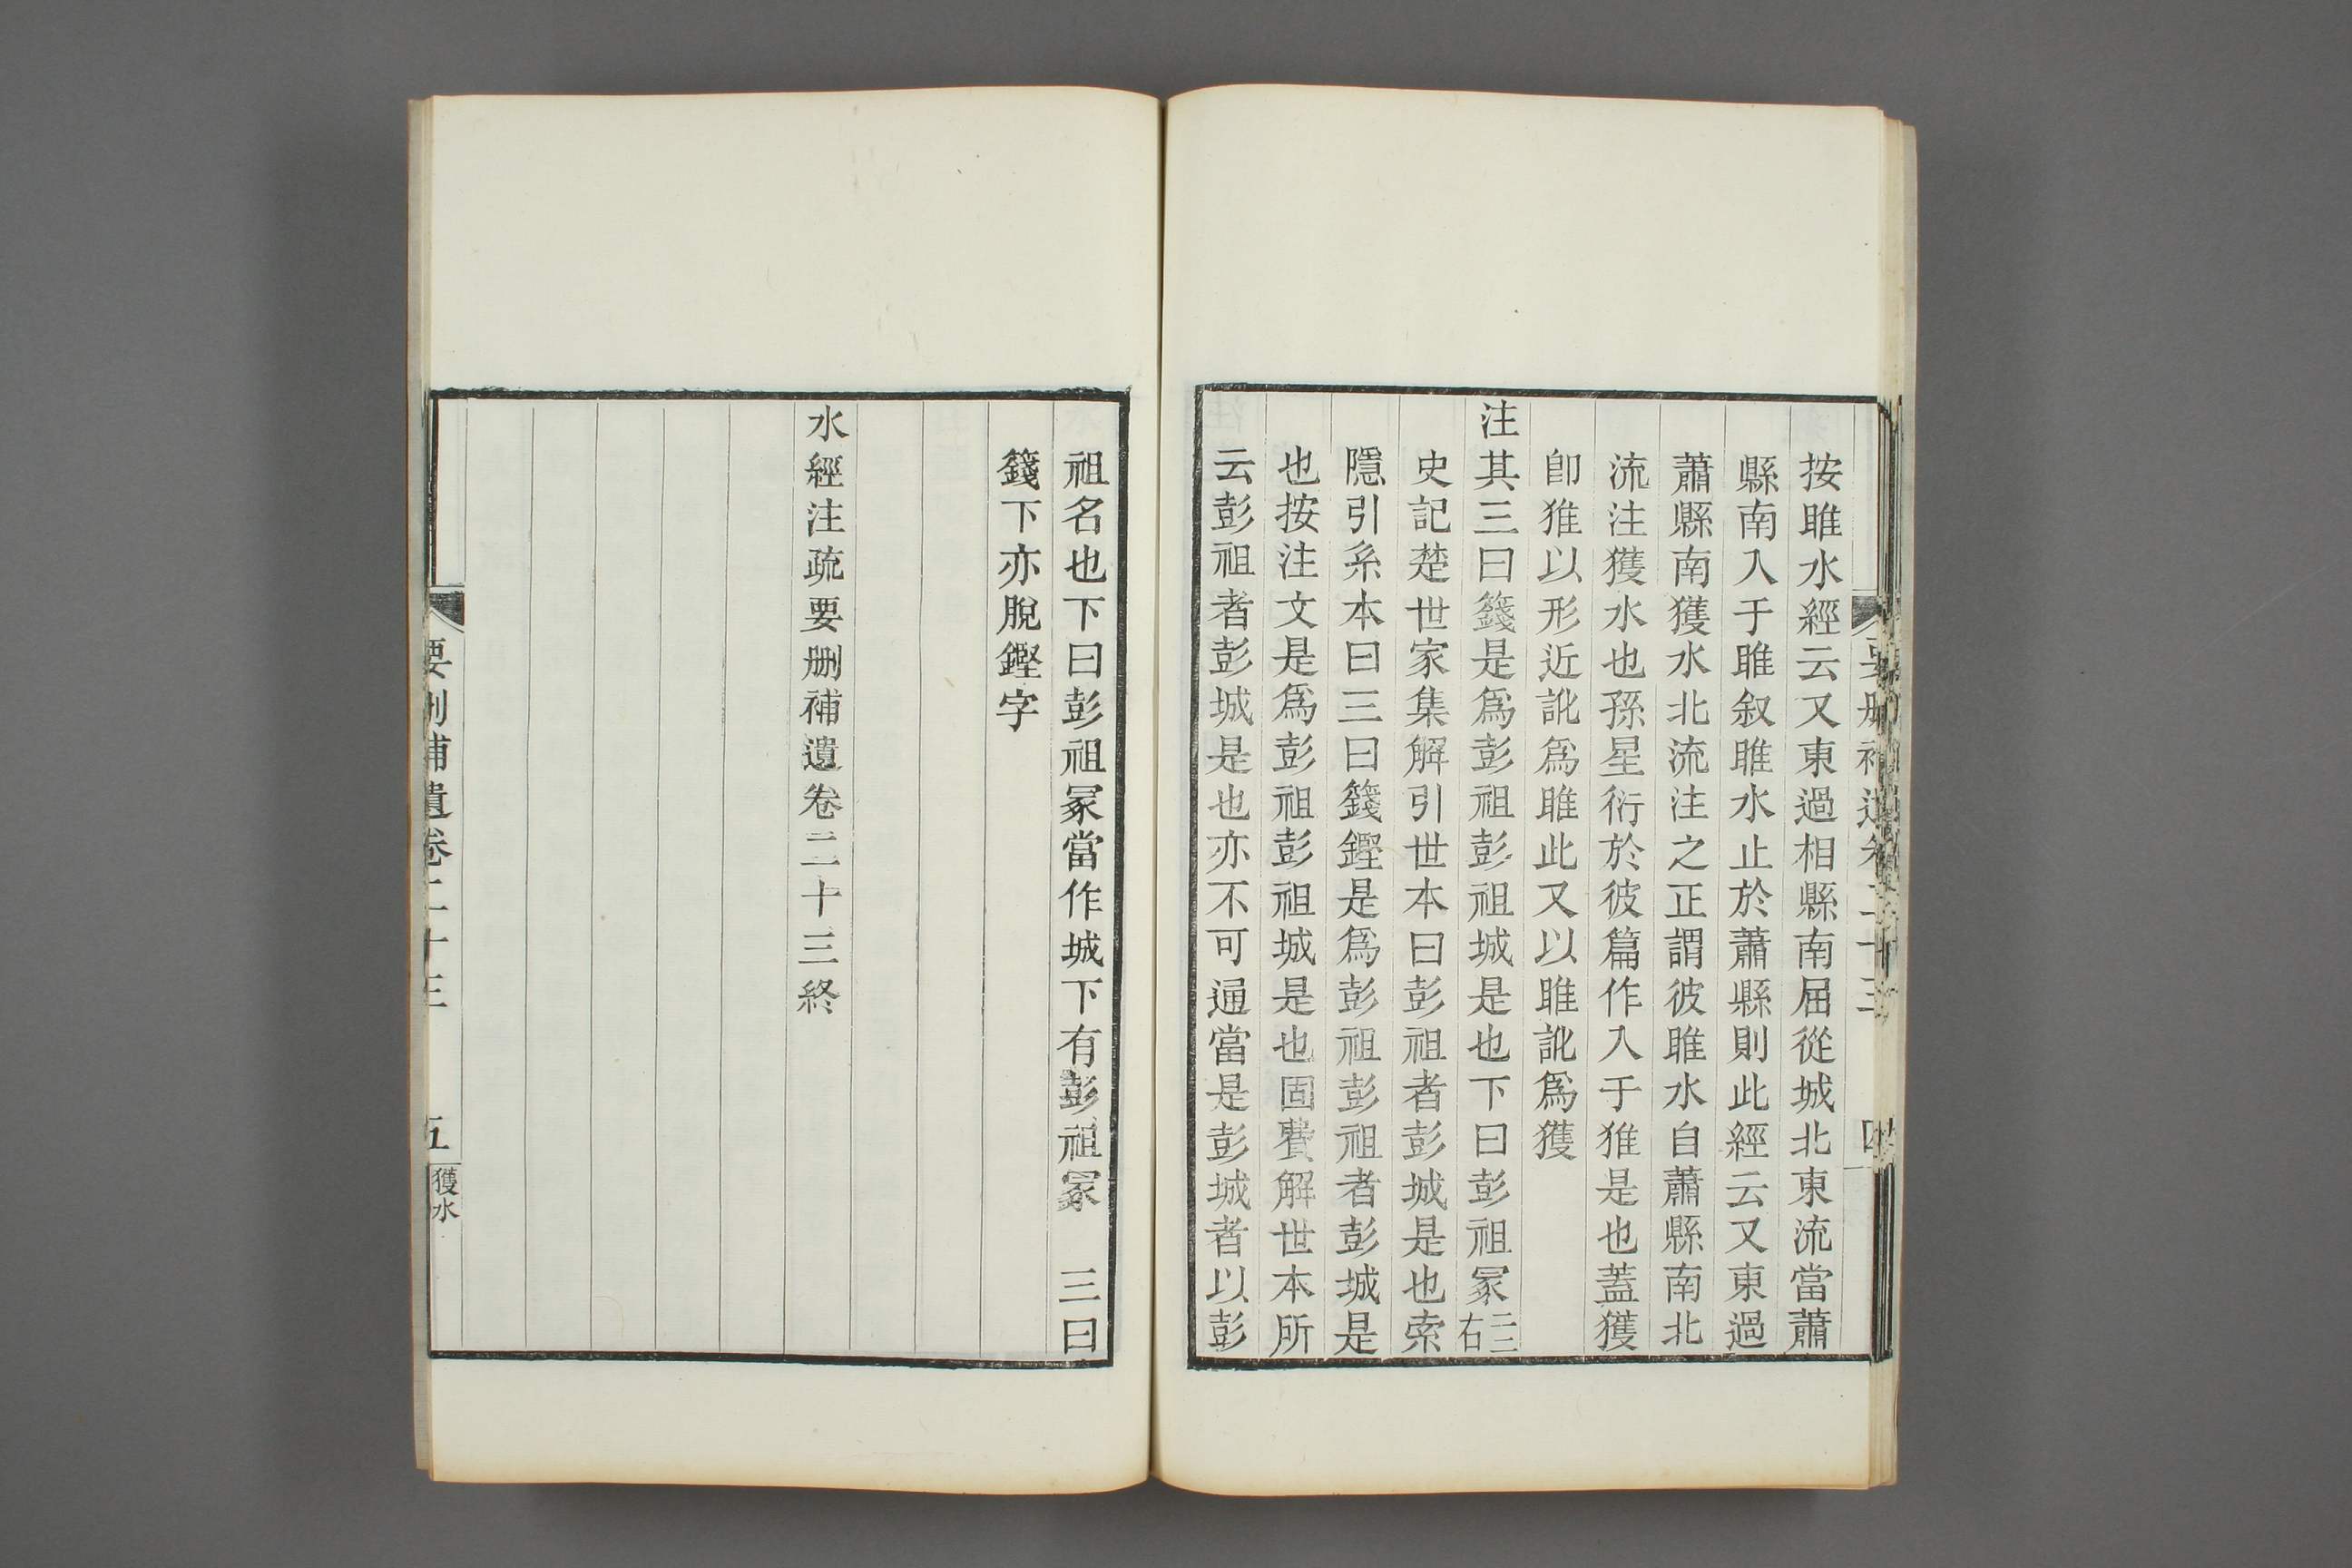 按雎水經云又東過相縣南屈從城北東流當蕭
縣南入于雎叙雎水止於蕭縣則此經云又東過
蕭縣南獲水北流注之正謂彼雎水自蕭縣南北
流注獲水也孫星衍於彼篇作入于猚是也蓋獲
卽猚以形近訛爲雎此又以雎訛爲獲
注其三曰籛是爲彭祖彭祖城是也下曰彭祖冢二三右
史記楚世家集解引世本曰彭祖者彭城是也索
隱引系本曰三曰籛鏗是爲彭祖彭祖者彭城是
也按注文是爲彭祖彭祖城是也固費解世本所
云彭祖者彭城是也亦不可通當是彭城者以彭
祖名也下曰彭祖冢當作城下有彭祖冢 三曰
籛下亦脫鏗字
水經注疏要刪補遺卷二十三終
要刪補遺卷二十三 五 獲水